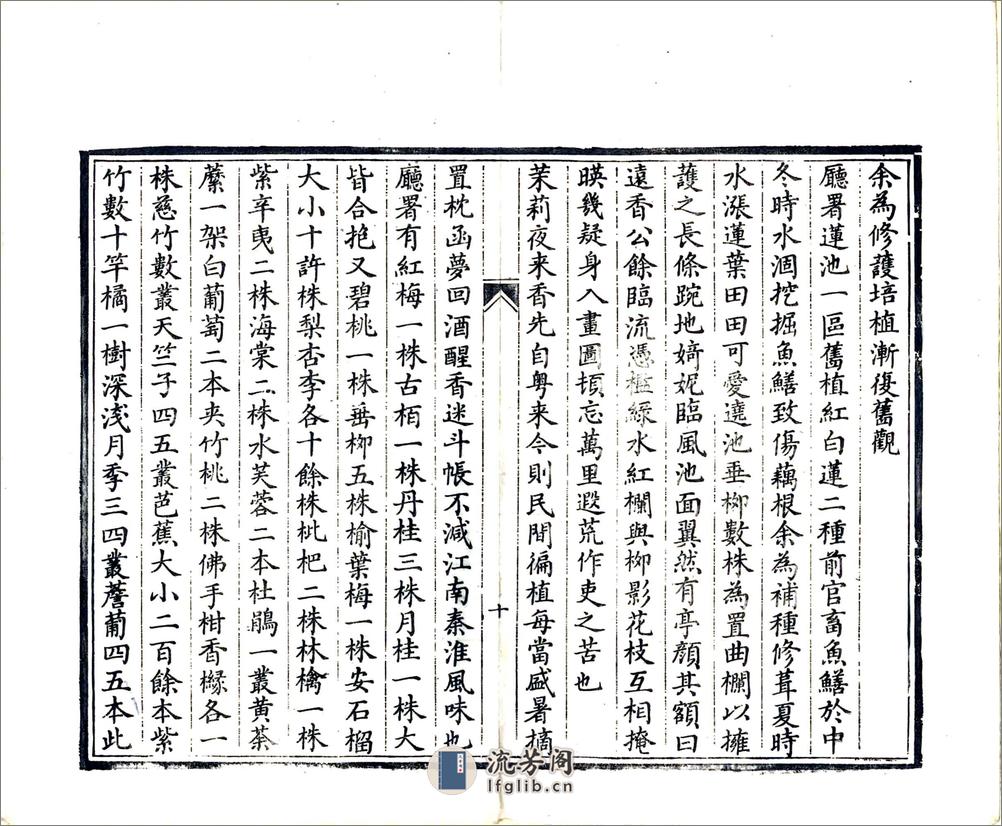 余為修護培植漸復舊觀
廳署蓮池一區舊植紅白蓮二種前官畜魚鱔於中
冬時水涸挖掘魚鱔致傷藕根余為補種修葺夏時
水漲蓮葉田田可愛遶池垂柳數株為置曲欄以擁
護之長條踠地婍妮臨風池面翼然有亭顏其額曰
遠香公餘臨流憑檻綠水紅欄與柳影花枝互相掩
暎幾疑身入畫圖頓忘萬里遐荒作吏之苦也
茉莉夜来香先自粵来今則民間徧植每當盛暑摘
十
置枕函夢回酒醒香迷斗帳不減江南秦淮風味也
廳署有紅梅一株古栢一株丹桂三株月桂一株大
皆合抱又碧桃一株垂柳五株榆葉梅一株安石榴
大小十許株梨杏李各十餘株枇杷二株林檎一株
紫辛夷二株海棠二株水芙蓉二本杜鵑一叢黄荼
蘼一架白葡萄二本夹竹桃二株佛手柑香櫞各一
株慈竹數叢天竺子四五叢芭蕉大小二百餘本紫
竹數十竿橘一樹深淺月季三四叢薝蔔四五本此
流芳阁
lfglib.cn